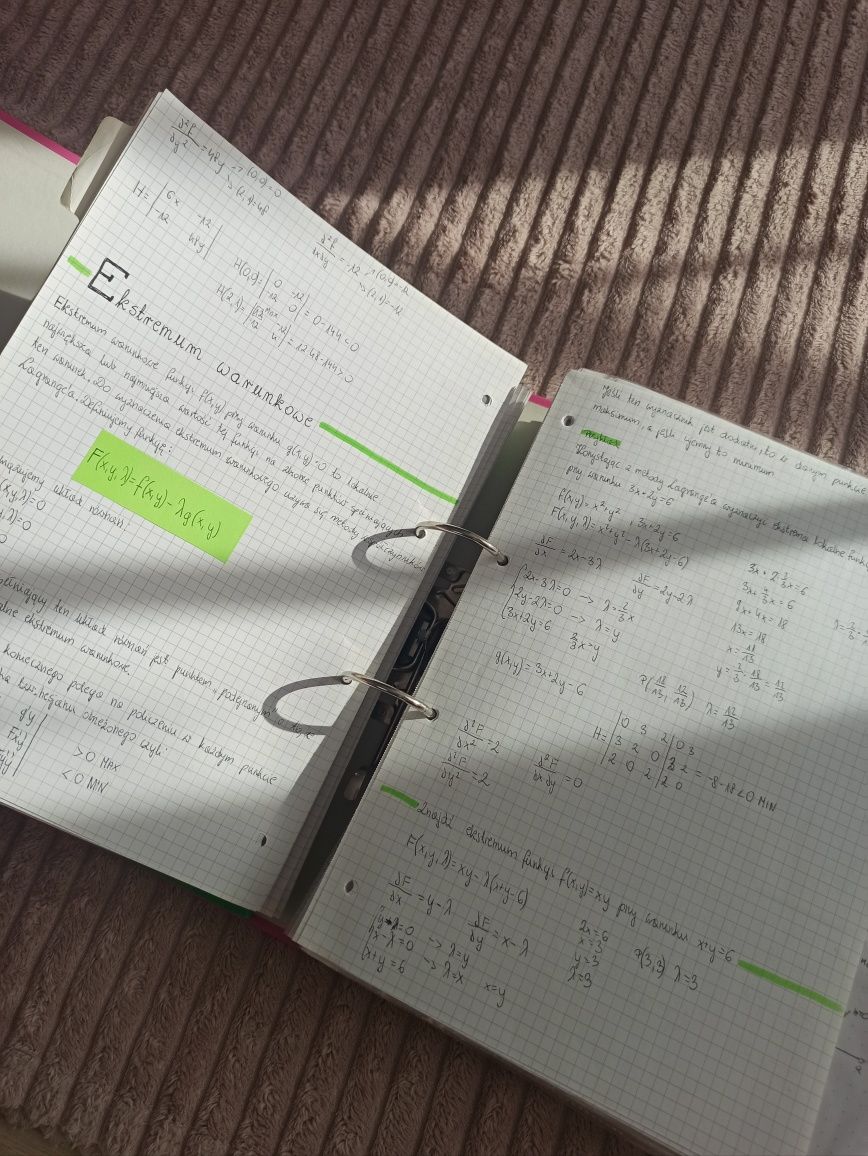 ∂²F/∂y² = 48y → (0,0)=0
↘ (2,1)=48
∂²F/∂x∂y = -12 ↗ (0,0)=-12
↘ (2,1)=-12
H= | 6x -12 |
| -12 48y |
H(0,0)= | 0 -12 | = 0-144<0
| -12 0 |
H(2,1)=
Ekstremum warunkowe
Ekstremum warunkowe funkcji f(x,y) przy warunku g(x,y)=0 to lokalnie
największa lub najmniejsza wartość tej funkcji na zbiorze punktów spełniających
ten warunek. Do wyznaczenia ekstremum warunkowego używa się metody
Lagrange'a. Definiujemy funkcję:
F(x,y,λ)=f(x,y)-λg(x,y)
układ równań:
(x,y,λ)=0
y,λ)=0
ten układ równań jest punktem podejrzanym o to, że
ekstremum warunkowe.
koniecznego polega na policzeniu w każdym punkcie
tzw. hesjanu obrzeżonego czyli:
g'y
F''xy
F''yy
>0 MAX
<0 MIN
Jeśli ten wyznacznik jest dodatni, to w danym punkcie
maksimum, a jeśli ujemny to minimum
Przykład
Korzystając z metody Lagrange'a wyznaczyć ekstrema lokalne funkcji
przy warunku 3x+2y=6
f(x,y)= x²+y² , 3x+2y=6
F(x,y,λ)= x²+y²-λ(3x+2y-6)
∂F/∂x = 2x-3λ ∂F/∂y = 2y-2λ
2x-3λ=0 → λ=2/3x
2y-2λ=0 → λ=y
3x+2y=6 2/3x=y
3x+2·2/3x=6
3x+4/3x=6
9x+4x=18
13x=18
x=18/13
y=2/3·18/13=12/13
g(x,y)=3x+2y-6
P(18/13, 12/13) λ=12/13
∂²F/∂x²=2
∂²F/∂y²=2 ∂²F/∂x∂y=0
H= | 0 3 2 | 0 3
| 3 2 0 | 3 2 = -8-18<0 MIN
| 2 0 2 | 2 0
Znajdź ekstremum funkcji f(x,y)=xy przy warunku x+y=6
F(x,y,λ)=xy-λ(x+y-6)
∂F/∂x = y-λ ∂F/∂y = x-λ
y-λ=0 → λ=y
x-λ=0 → λ=x x=y
x+y=6
2x=6
x=3
y=3
λ=3
P(3,3) λ=3